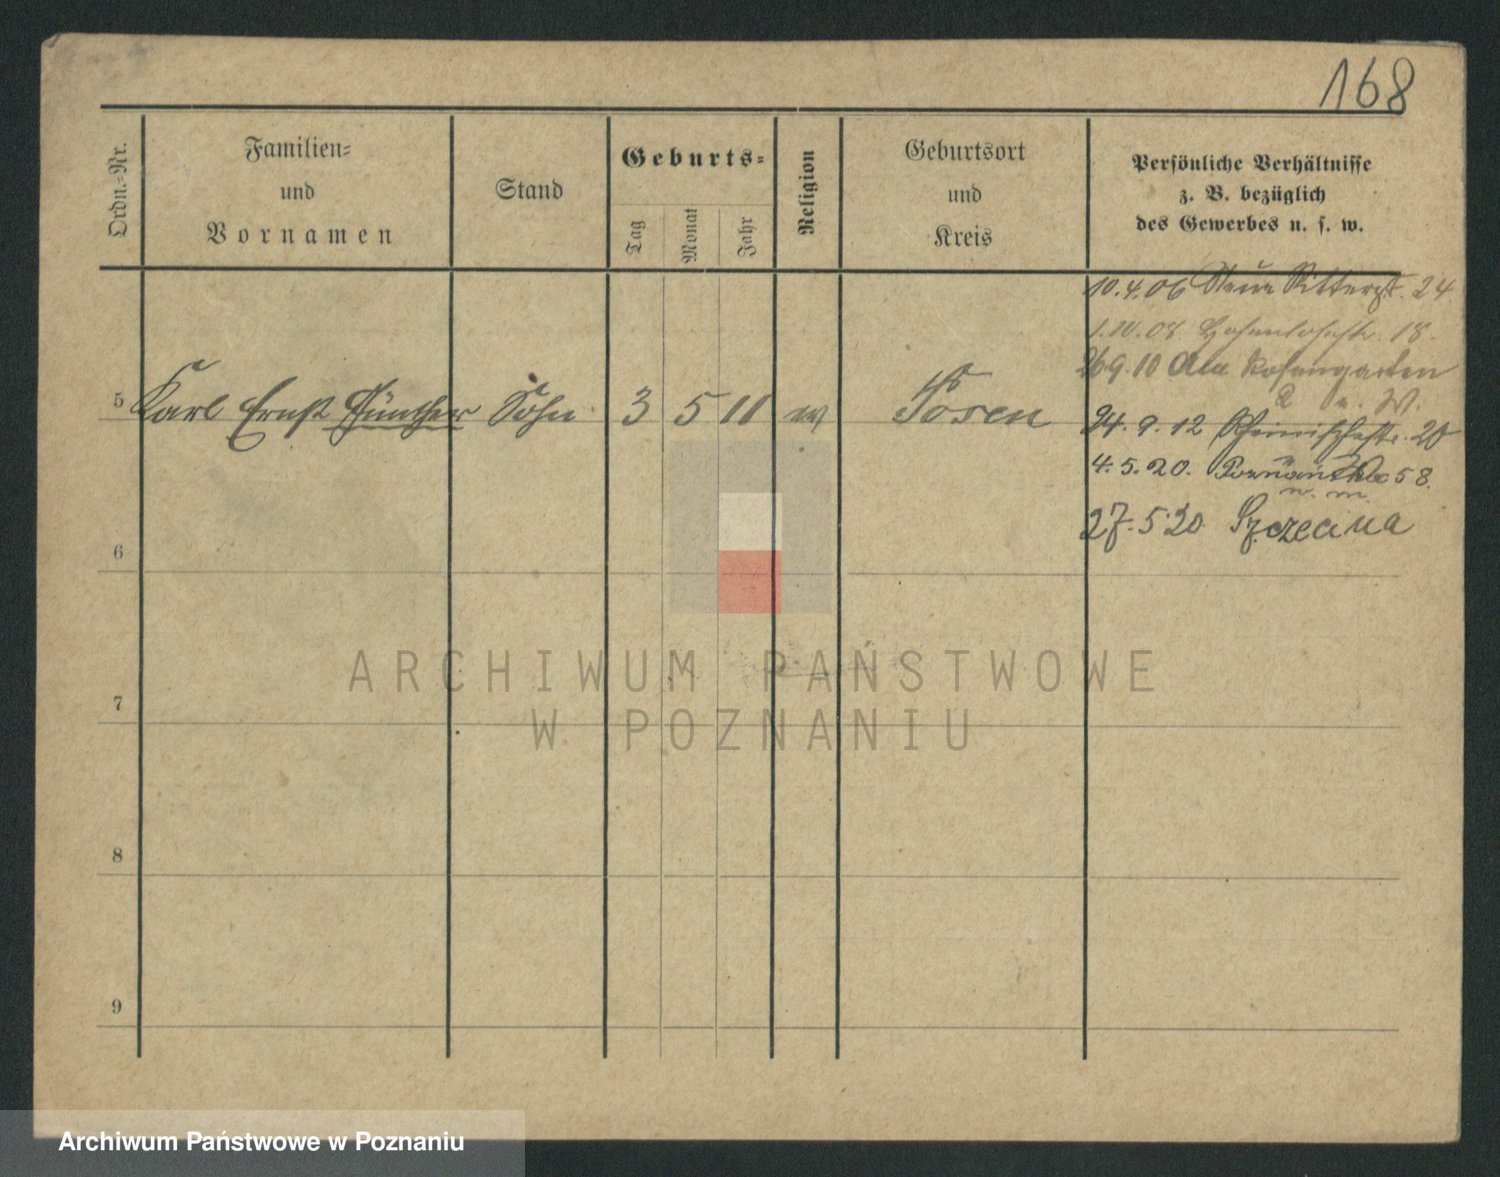 168
Ordn.-Nr.
Familien-
und
Vornamen
Stand
Geburts-
Tag
Monat
Jahr
Religion
Geburtsort
und
Kreis
Persönliche Verhältnisse
z. B. bezüglich
des Gewerbes u. s. w.
10.4.06 Neue Ritterstr. 24
1.IV.08 Hohenlohestr. 18.
26 9.10 Am Rosengarten
2
5 Karl Ernst Günther Sohn 3 5 11 Posen
24.9.12 20
4.5.20. 58.
27.5.20 Szczecina
6
7
8
9
ARCHIWUM PAŃSTWOWE
W POZNANIU
Archiwum Państwowe w Poznaniu